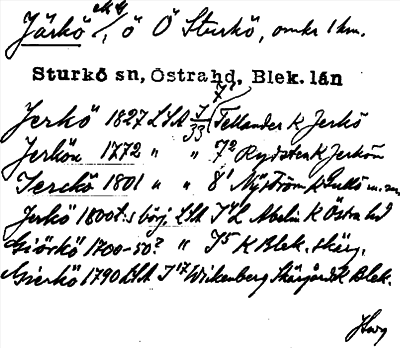 Järkö, ö Ö Sturkö, omkr 1 km.
Sturkö sn, Östra hd, Blek. län
Jerkö 1827 LSA Fellander K Jerkö
Jerkön 1772 " " 7² Rydsten K Jerkön
Jerckö 1801 " " 8¹ Nyström K
Jerkö 1800t:s börj. LSA Abelin K Östra hd
Giörkö 1700-50? " J5 K Blek. skärg.
Gierkö 1790 LSA J 17 Wickenberg Skärgårdsk Blek.